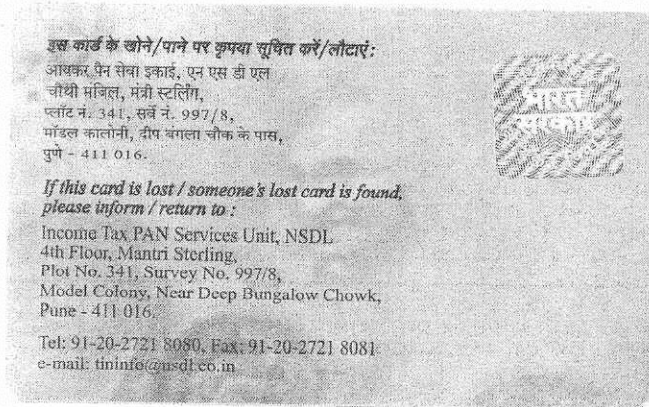 इस कार्ड के खोने/पाने पर कृपया सूचित करें/लौटाएं:
आयकर पैन सेवा इकाई, एन एस डी एल
चौथी मंजिल, मंत्री स्टर्लिंग,
प्लॉट नं. 341, सर्वे नं. 997/8,
मॉडल कालोनी, दीप बंगला चौक के पास,
पुणे - 411 016.
भारत
सरकार
If this card is lost / someone's lost card is found,
please inform / return to :
Income Tax PAN Services Unit, NSDL
4th Floor, Mantri Sterling,
Plot No. 341, Survey No. 997/8,
Model Colony, Near Deep Bungalow Chowk,
Pune - 411 016.
Tel: 91-20-2721 8080, Fax: 91-20-2721 8081
e-mail: tininfo@nsdl.co.in